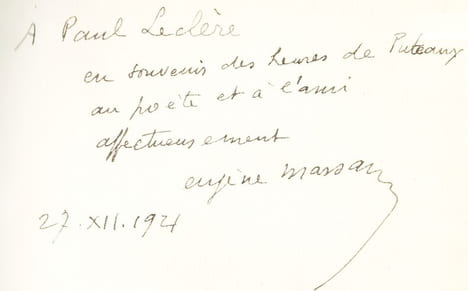 A Paul Leclère
en souvenir des heures de Puteaux
au poète et à l'ami
affectueusement
eugène marsan
27.XII.1921